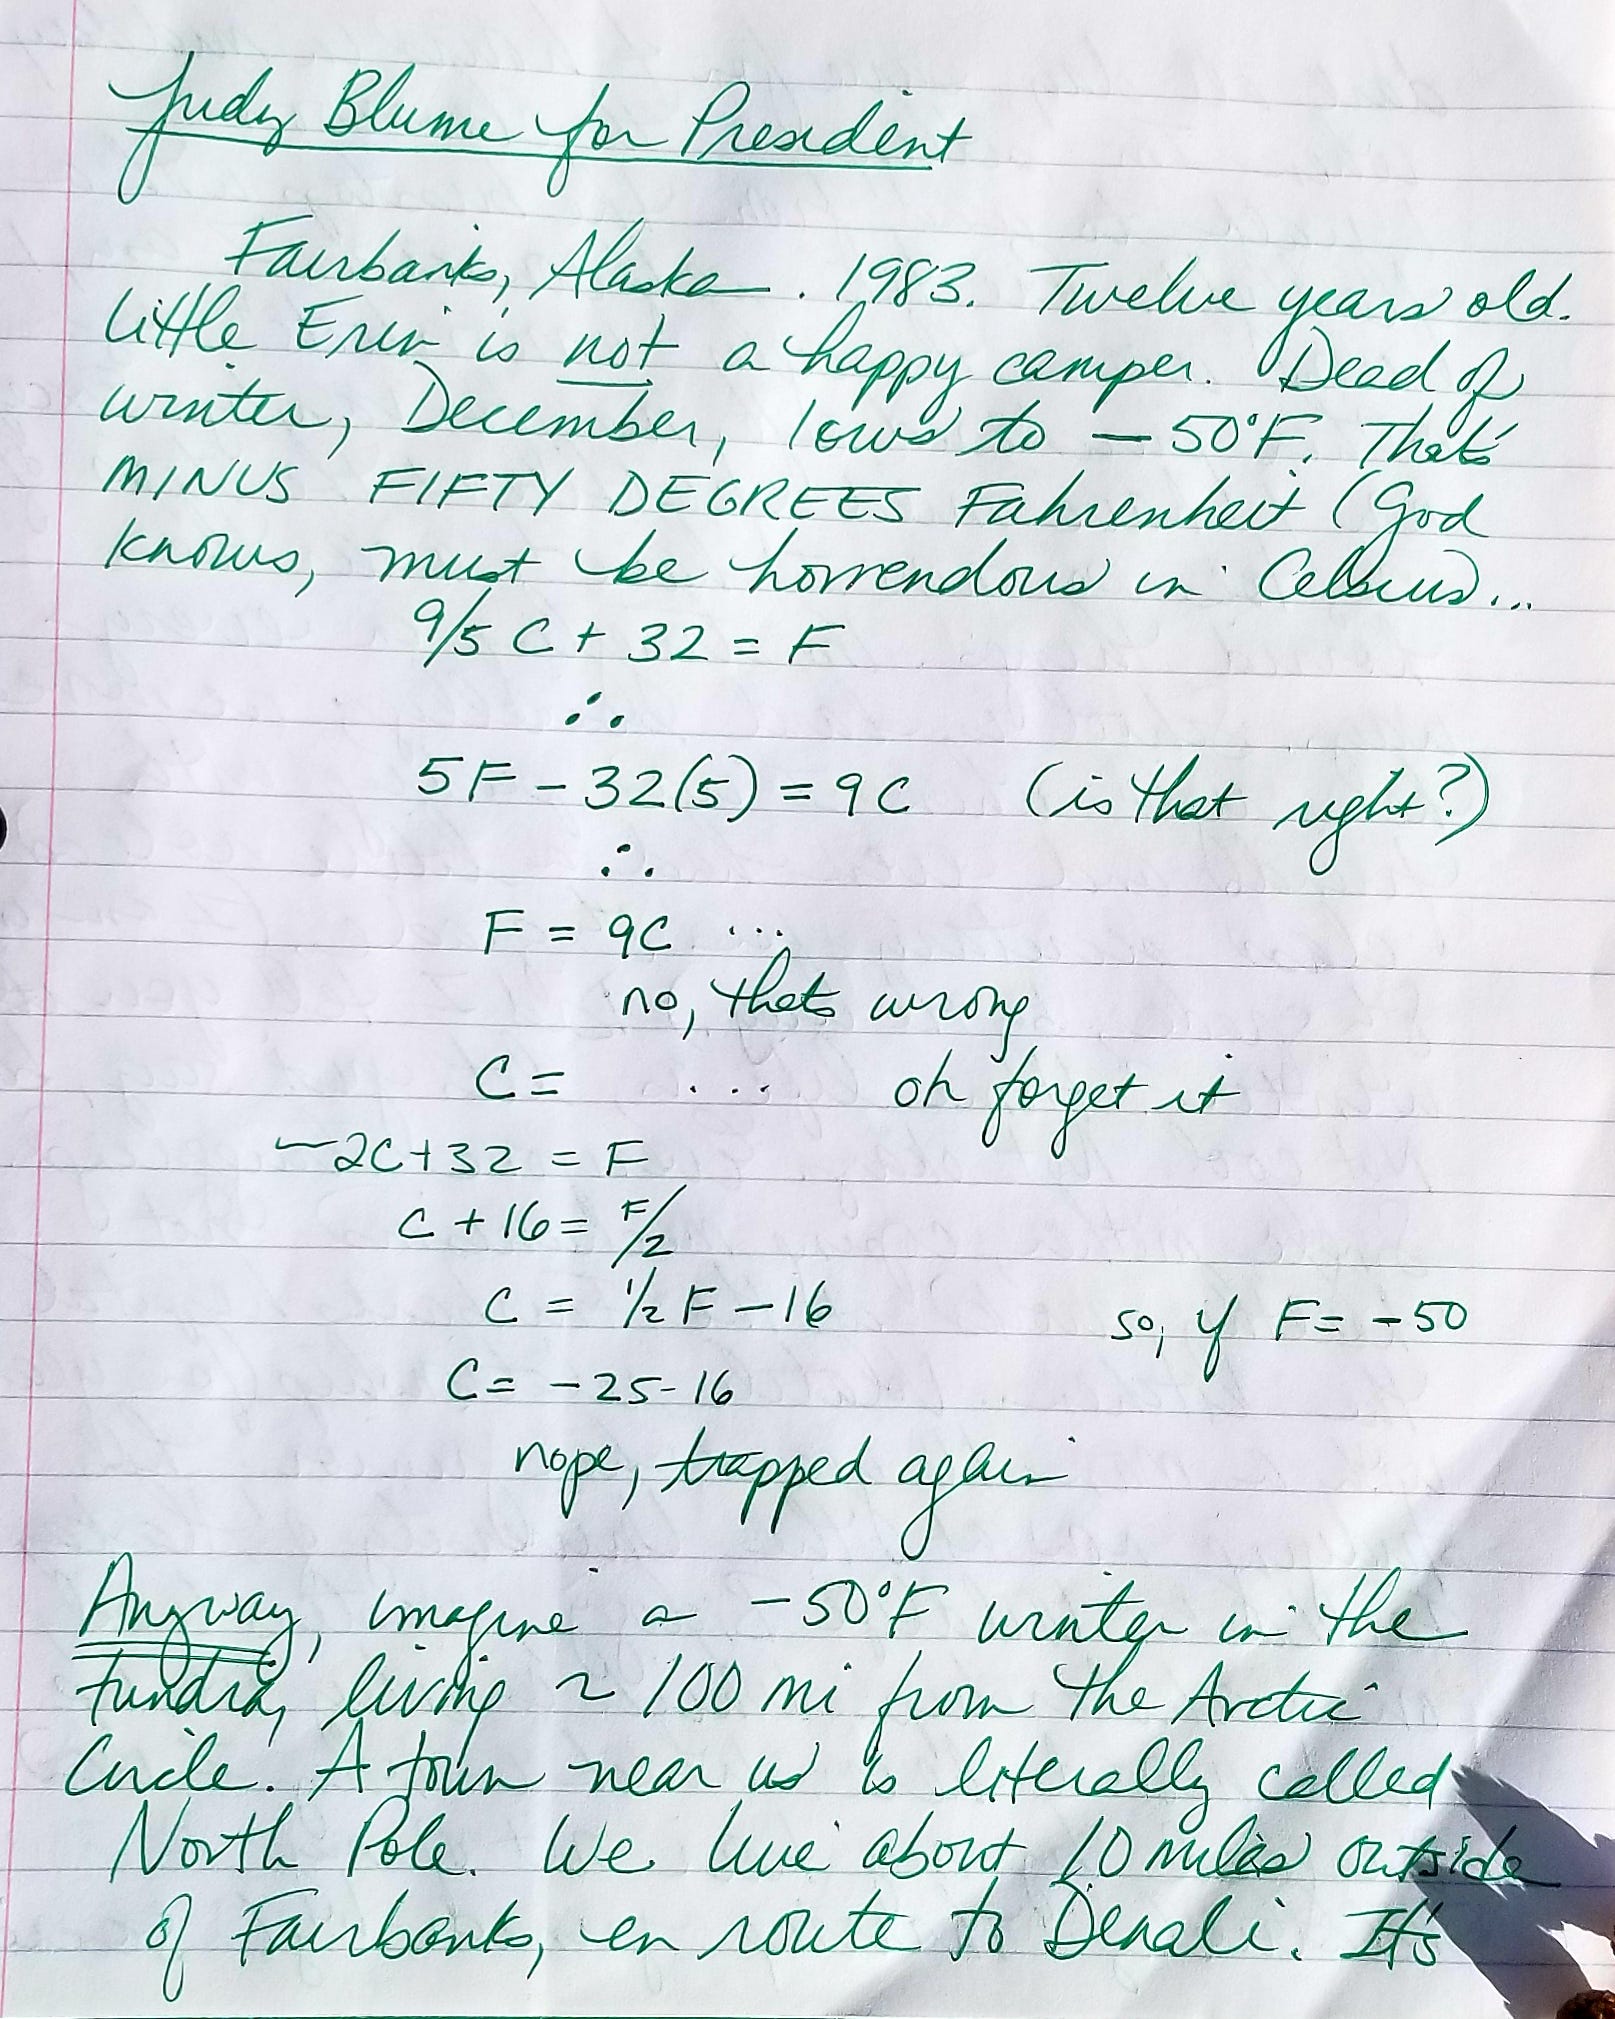 Judy Blume for President
Fairbanks, Alaska. 1983. Twelve years old.
Little Erin is not a happy camper. Dead of
winter, December, lows to -50°F. That's
MINUS FIFTY DEGREES Fahrenheit (God
knows, must be horrendous in Celsius...
9/5 C + 32 = F
∴
5F - 32(5) = 9C (is that right?)
∴
F = 9C ...
no, thats wrong
C = ... oh forget it
~2C+32 = F
C + 16 = F/2
C = 1/2 F - 16 so, if F = -50
C = -25-16
nope, trapped again
Anyway, imagine a -50°F winter in the
tundra, living ~ 100 mi from the Arctic
Circle. A town near us is literally called
North Pole. We live about 10 miles outside
of Fairbanks, en route to Denali. It's